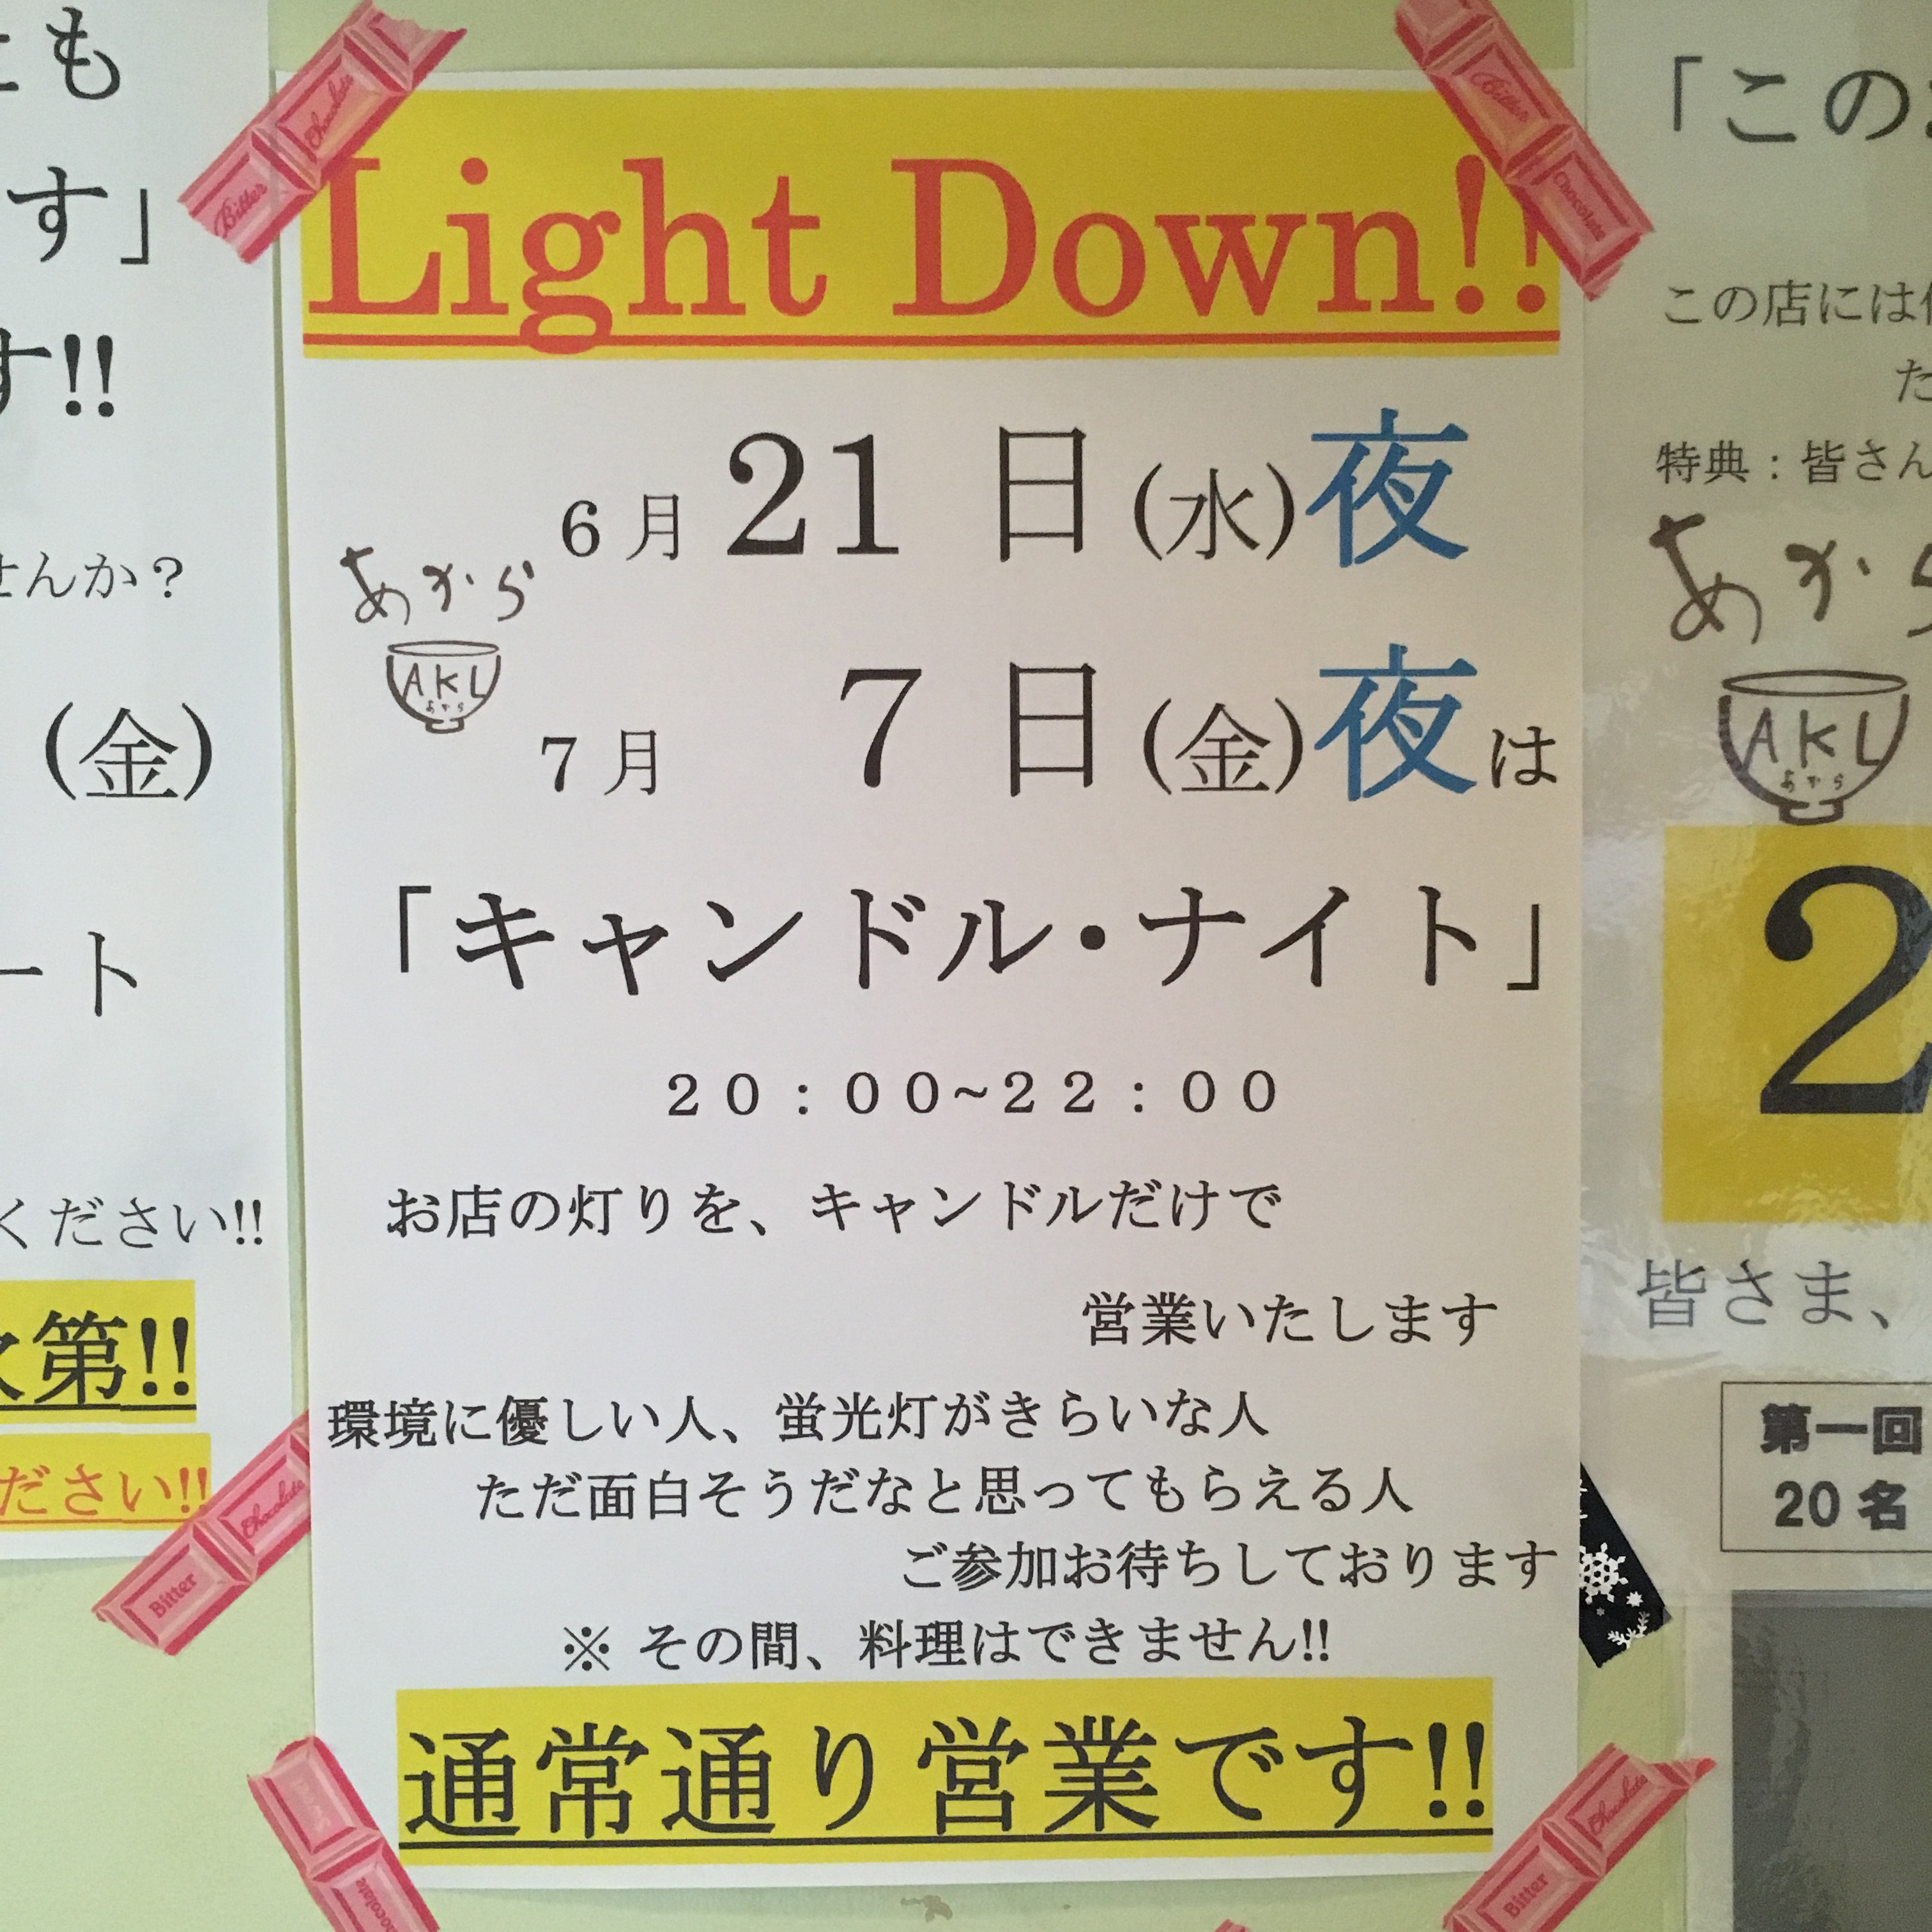 Light Down!!
6月21日(水)夜
あから
AKL
あから
7月 7日(金)夜は
「キャンドル・ナイト」
20：00~22：00
お店の灯りを、キャンドルだけで
営業いたします
環境に優しい人、蛍光灯がきらいな人
ただ面白そうだなと思ってもらえる人
ご参加お待ちしております
※ その間、料理はできません!!
通常通り営業です!!
も
す」
す!!
せんか？
(金)
ート
ください!!
第!!
ださい!!
「この
この店には
た
特典：皆さん
あから
AKL
あから
2
皆さま、
第一回
20名
Bitter
Chocolate
Bitter
Chocolate
Bitter
Chocolate
Chocolate
Bitter
Chocolate